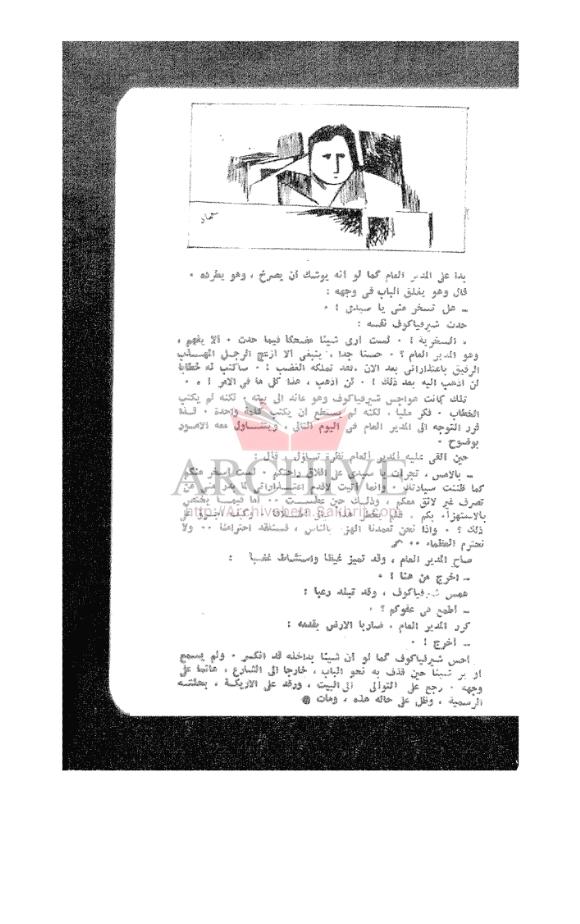 بدا على المدير العام كما لو أنه يوشك أن يصرخ ، وهو يطرده ٠
قال وهو يغلق الباب فى وجهه :
ــ هل تسخر منى يا سيدى ! ٠
حدث شيرفياكوف نفسه :
« السخرية ! ٠ لست أرى شيئا مضحكا فيما حدث ٠ ألا يفهم ،
وهو المدير العام ؟ ٠ حسنا جدا ، ينبغى ألا أزعج الرجل المهذب
الرقيق باعتذاراتى بعد الآن ٠ فقد تملكه الغضب ! ٠ سأكتب له خطابا
لن أذهب اليه بعد ذلك ! ٠ لن أذهب ، هذا كل ما فى الأمر ! » ٠
تلك كانت هواجس شيرفياكوف وهو عائد الى بيته ٠ لكنه لم يكتب
الخطاب ٠ فكر مليا ، لكنه لم يستطع أن يكتب كلمة واحدة ٠ لذا
قرر التوجه الى المدير العام فى اليوم التالى ، ويتناول معه الأمور
بوضوح ٠
حين ألقى عليه المدير العام نظرة تساؤل ، قال :
ــ بالأمس ، تجرأت يا سيدى على اقلاق راحتكم ٠ لست أسخر منكم
كما ظننت سيادتك ٠ وانما أتيت لأقدم اعتذاراتى عما بدر منى من
تصرف غير لائق معكم ، وذلك حين عطست ٠٠ أما فيما يختص
بالاستهزاء بكم ، فلم يخطر هذا ببالى اطلاقا ، وكيف أجرؤ على
ذلك ؟ ٠ واذا نحن تعمدنا الهزء بالناس ، فسنفقد احترامنا ٠٠ ولا
نحترم العظماء ٠٠
صاح المدير العام ، وقد تميز غيظا واستشاط غضبا :
ــ اخرج من هنا ! ٠
همس شيرفياكوف ، وقد تبلد رعبا :
ــ أطمع فى عفوكم ؟ ٠
كرر المدير العام ، ضاربا الأرض بقدمه :
ــ اخرج ! ٠
أحس شيرفياكوف كما لو أن شيئا بداخله قد انكسر ٠ ولم يسمع
أو ير شيئا حين قذف به نحو الباب ، خارجا الى الشارع ، هائما على
وجهه ٠ رجع على التوالى الى البيت ، ورقد على الأريكة ، بحلته
الرسمية ، وظل على حاله هذه ، ومات
ARCHIVE
http://Archivebeta.Sakhrit.com